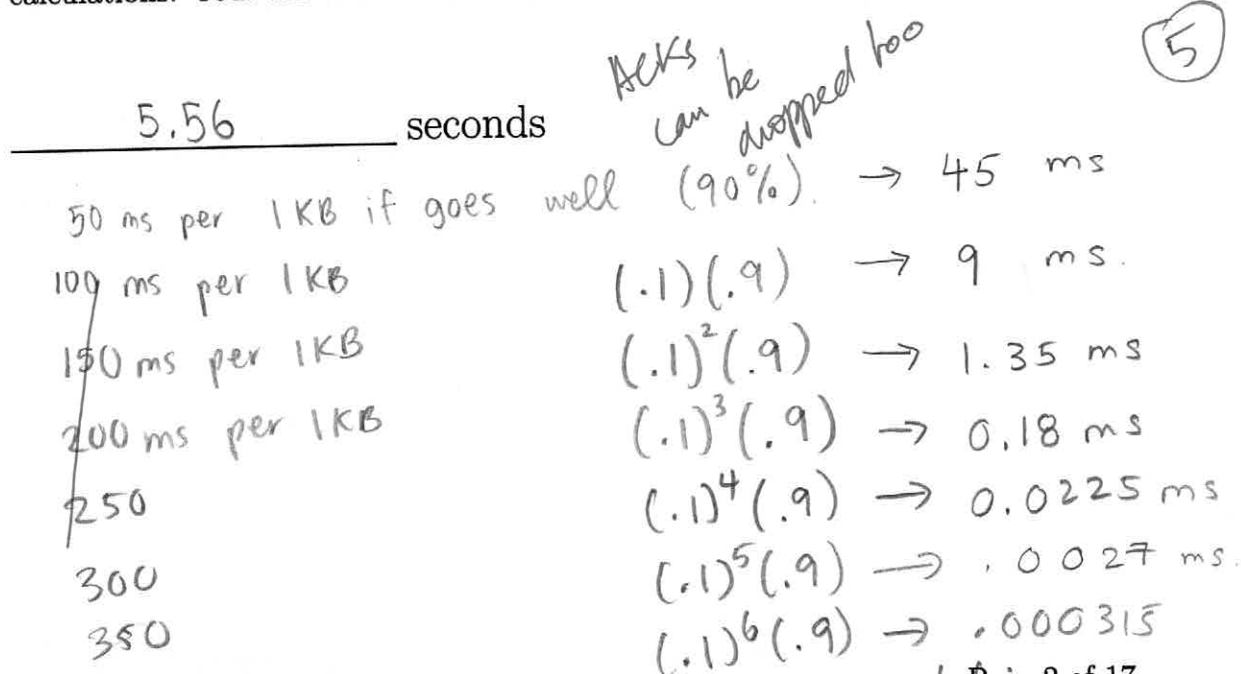 5
ACKs
can be
dropped too
5.56 seconds
50 ms per 1 KB if goes well (90%). → 45 ms
100 ms per 1 KB (.1)(.9) → 9 ms.
150 ms per 1KB (.1)²(.9) → 1.35 ms
200 ms per 1KB (.1)³(.9) → 0.18 ms
250 (.1)⁴(.9) → 0.0225 ms
300 (.1)⁵(.9) → .0027 ms.
350 (.1)⁶(.9) → .000315
of 17